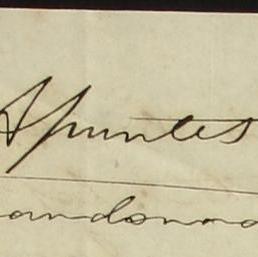 Apuntes
andonad